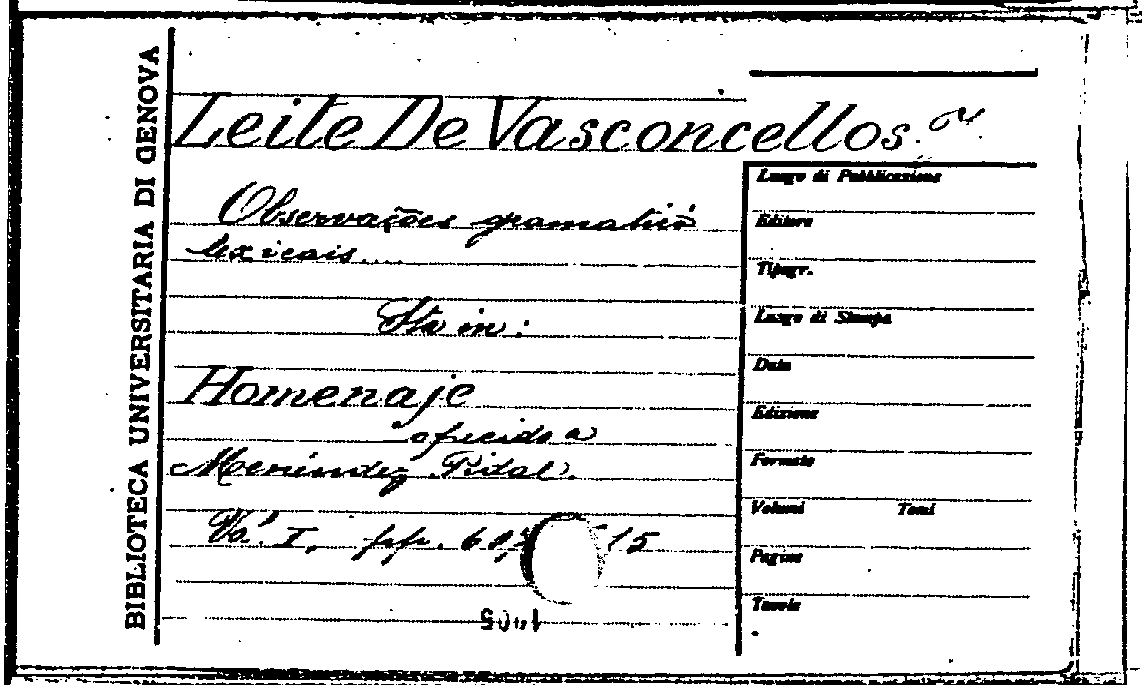 BIBLIOTECA UNIVERSITARIA DI GENOVA
Leite De Vasconcellos
Observações gramatico
lexicais....
Sta in:
Homenaje
ofrecido a
Menéndez Pidal.
Vol. I, pp. 607 15
Luogo di Pubblicazione
Editore
Tipogr.
Luogo di Stampa
Data
Edizione
Formato
Volumi Tomi
Pagine
Tavole